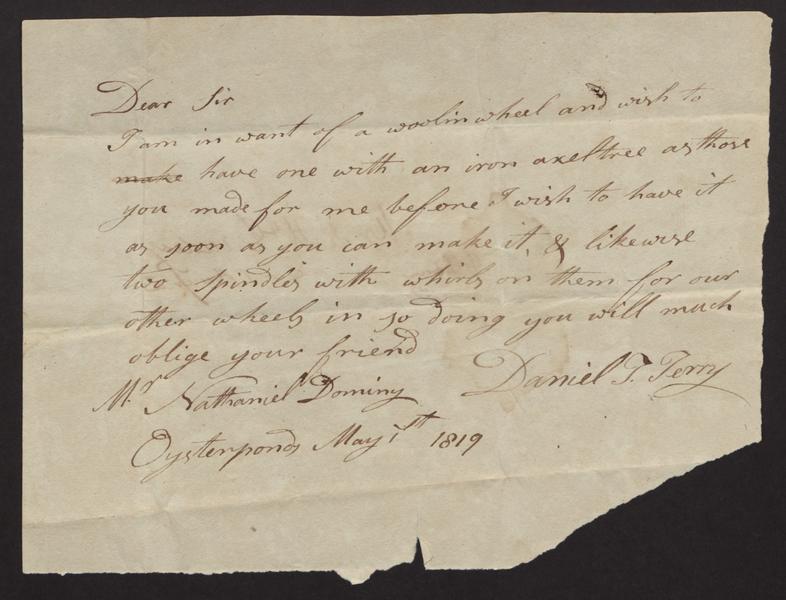 Dear Sir
I am in want of a woolin wheel and wish to
make have one with an iron axeltree as those
you made for me before I wish to have it
as soon as you can make it, & likewise
two spindles with whirls on them for our
other wheels in so doing you will much
oblige your friend
Daniel T. Terry
Mr Nathaniel Dominy
Oysterponds May 1th 1819